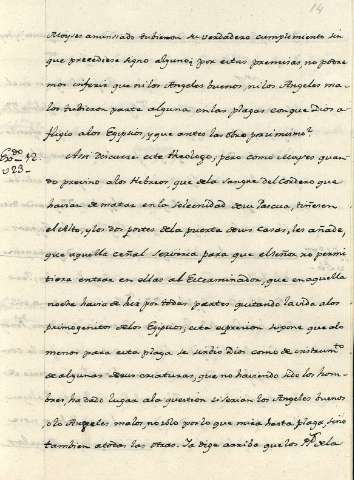 14
Moyses anunciado tubieron su verdadero cumplimiento sin
que precediese signo alguno; por estas premisas, no podre
mos inferir que ni los Angeles buenos, ni los Angeles ma
los tubieron parte alguna en las plagas con que Dios a
fligió a los Egipcios, y que antes las obró por si mismo?
Exodo 12.
v 23.
Assi discurre este Theologo; pero como Moyses quan
do previno a los Hebreos, que de la Sangre del Cordero que
havian de matar en la solemnidad de su Pascua, tiñesen
el Alto, y los dos postes de la puerta de sus Casas, les añade,
que aquella señal serviria para que el Señor no permi
tiera entrar en ellas al Exterminador, que en aquella
noche havia de ir por todas partes quitando la vida a los
primogenitos de los Egipcios; esta expresion supone que a lo
menos para esta plaga se sirbió Dios como de instrumto
de algunas de sus criaturas, que no haviendo sido los hom
bres, ha dado lugar a la question si serian los Angeles buenos
o los Angeles malos, no sólo por lo que mira a esta plaga, sino
tambien a todas las otras. Ya dige arriba que los PP. de la